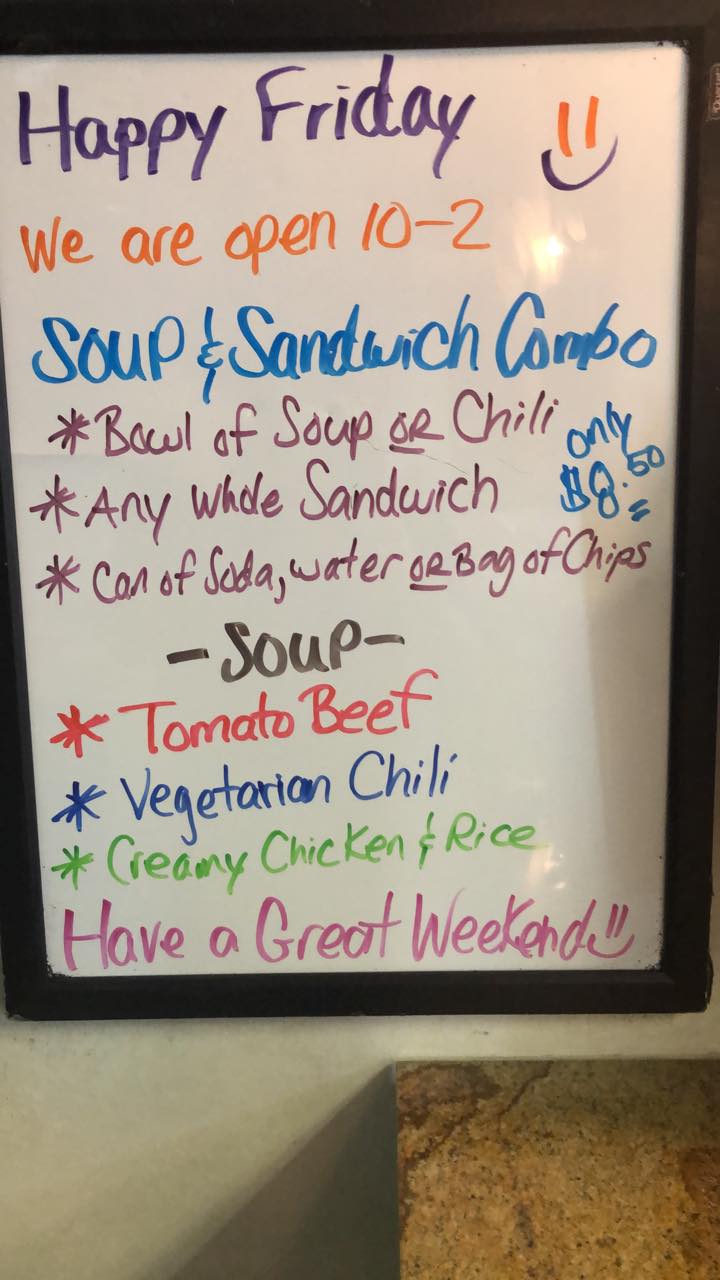 Happy Friday
We are open 10-2
Soup & Sandwich Combo
* Bowl of Soup or Chili
only
$8.50
* Any Whole Sandwich
* Can of Soda, water or Bag of Chips
- Soup -
* Tomato Beef
* Vegetarian Chili
* Creamy Chicken & Rice
Have a Great Weekend